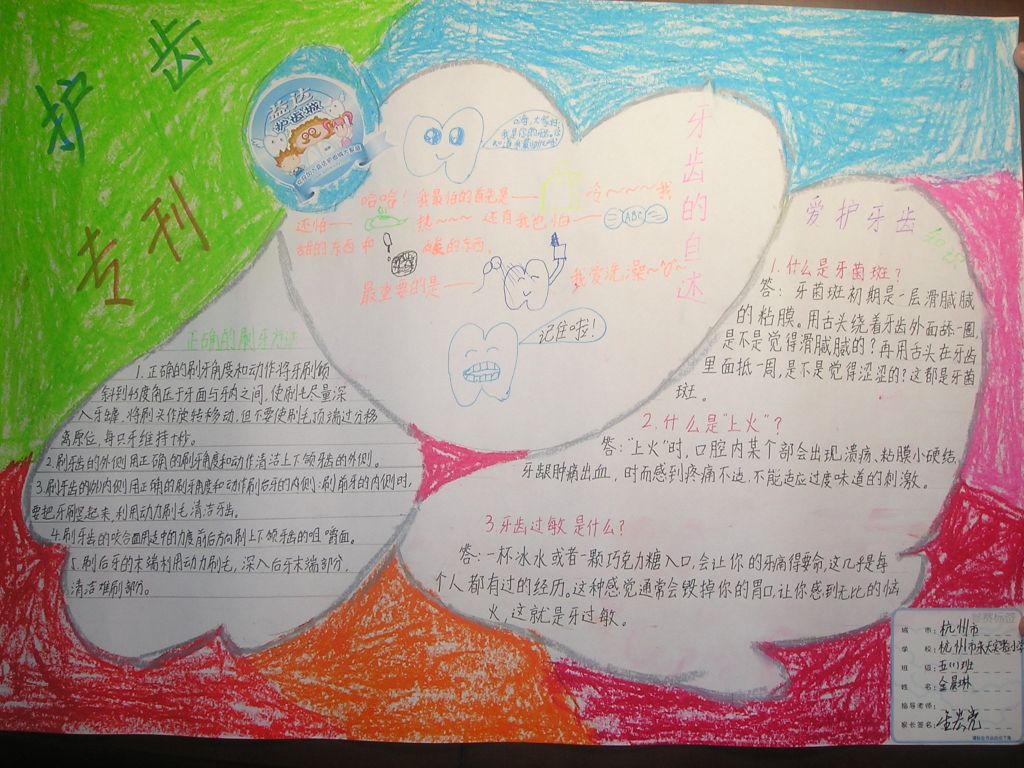 护齿
专刊
益达
护齿
牙齿的自述
哈哈！我最怕的首先是—— 冷～～～我
还怕—— 热～～～ 还有我也怕—— ABC
的东西和 的东西.
最重要的是—— 我爱洗澡～
记住啦！
正确的刷牙方法
1.正确的刷牙角度和动作将牙刷倾
斜到45度角压于牙面与牙肉之间，使刷毛尽量深
入牙缝，将刷头作旋转移动，但不要使刷毛顶端过分移
离原位，每只牙维持十秒。
2.刷牙齿的外侧用正确的刷牙角度和动作清洁上下颌牙齿的外侧。
3.刷牙齿的内侧用正确的刷牙角度和动作刷后牙的内侧：刷前牙的内侧时，
要把牙刷竖起来，利用动力刷毛清洁牙齿。
4.刷牙齿的咬合面用适中的力度前后方向刷上下颌牙齿的咀嚼面。
5.刷后牙的末端利用动力刷毛，深入后牙末端部分，
清洁难刷部分。
爱护牙齿
知识
1.什么是牙菌斑？
答：牙菌斑初期是一层滑腻腻
的粘膜。用舌头绕着牙齿外面舔一圈，
是不是觉得滑腻腻的？再用舌头在牙齿
里面抵一周，是不是觉得涩涩的？这都是牙菌
斑。
2.什么是"上火"？
答："上火"时，口腔内某个部会出现溃疡、粘膜小硬结，
牙龈肿痛出血，时而感到疼痛不适，不能适应过度味道的刺激。
3.牙齿过敏是什么？
答：一杯冰水或者一颗巧克力糖入口，会让你的牙痛得要命，这几乎是每
个人都有过的经历。这种感觉通常会毁掉你的胃口，让你感到无比的恼
火，这就是牙过敏。
参赛标签
城 市：杭州市
学 校：
班 级：五(1)班
姓 名：金晨琳
指导老师：
家长签名：